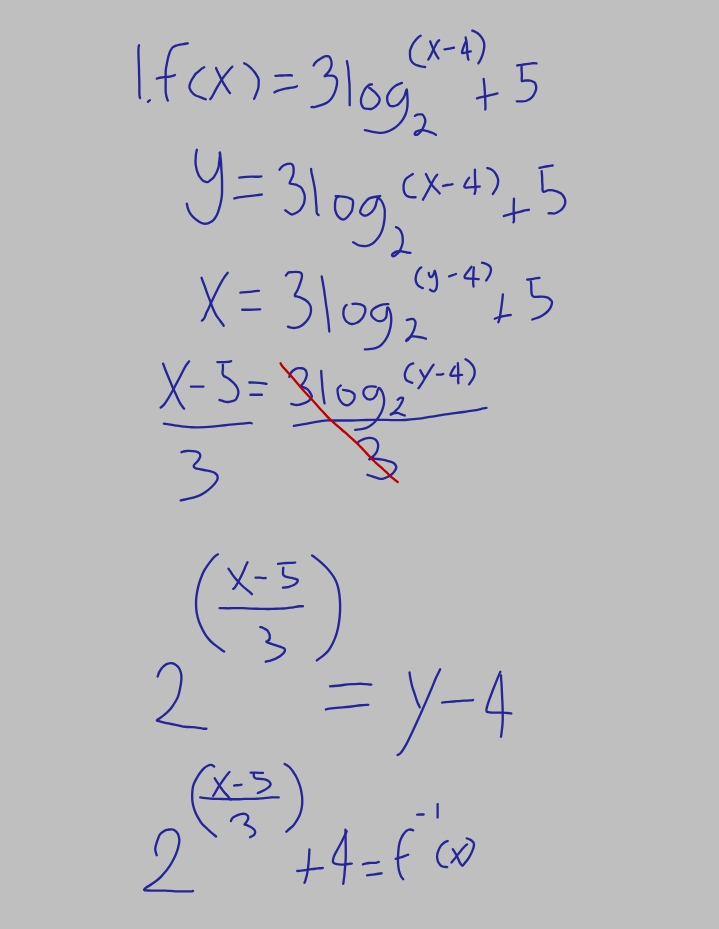 1. f(x) = 3log₂^(x-4) + 5
y = 3log₂^(x-4) + 5
x = 3log₂^(y-4) + 5
(x-5)/3 = 3log₂^(y-4)/3
2^((x-5)/3) = y-4
2^((x-5)/3) + 4 = f⁻¹(x)